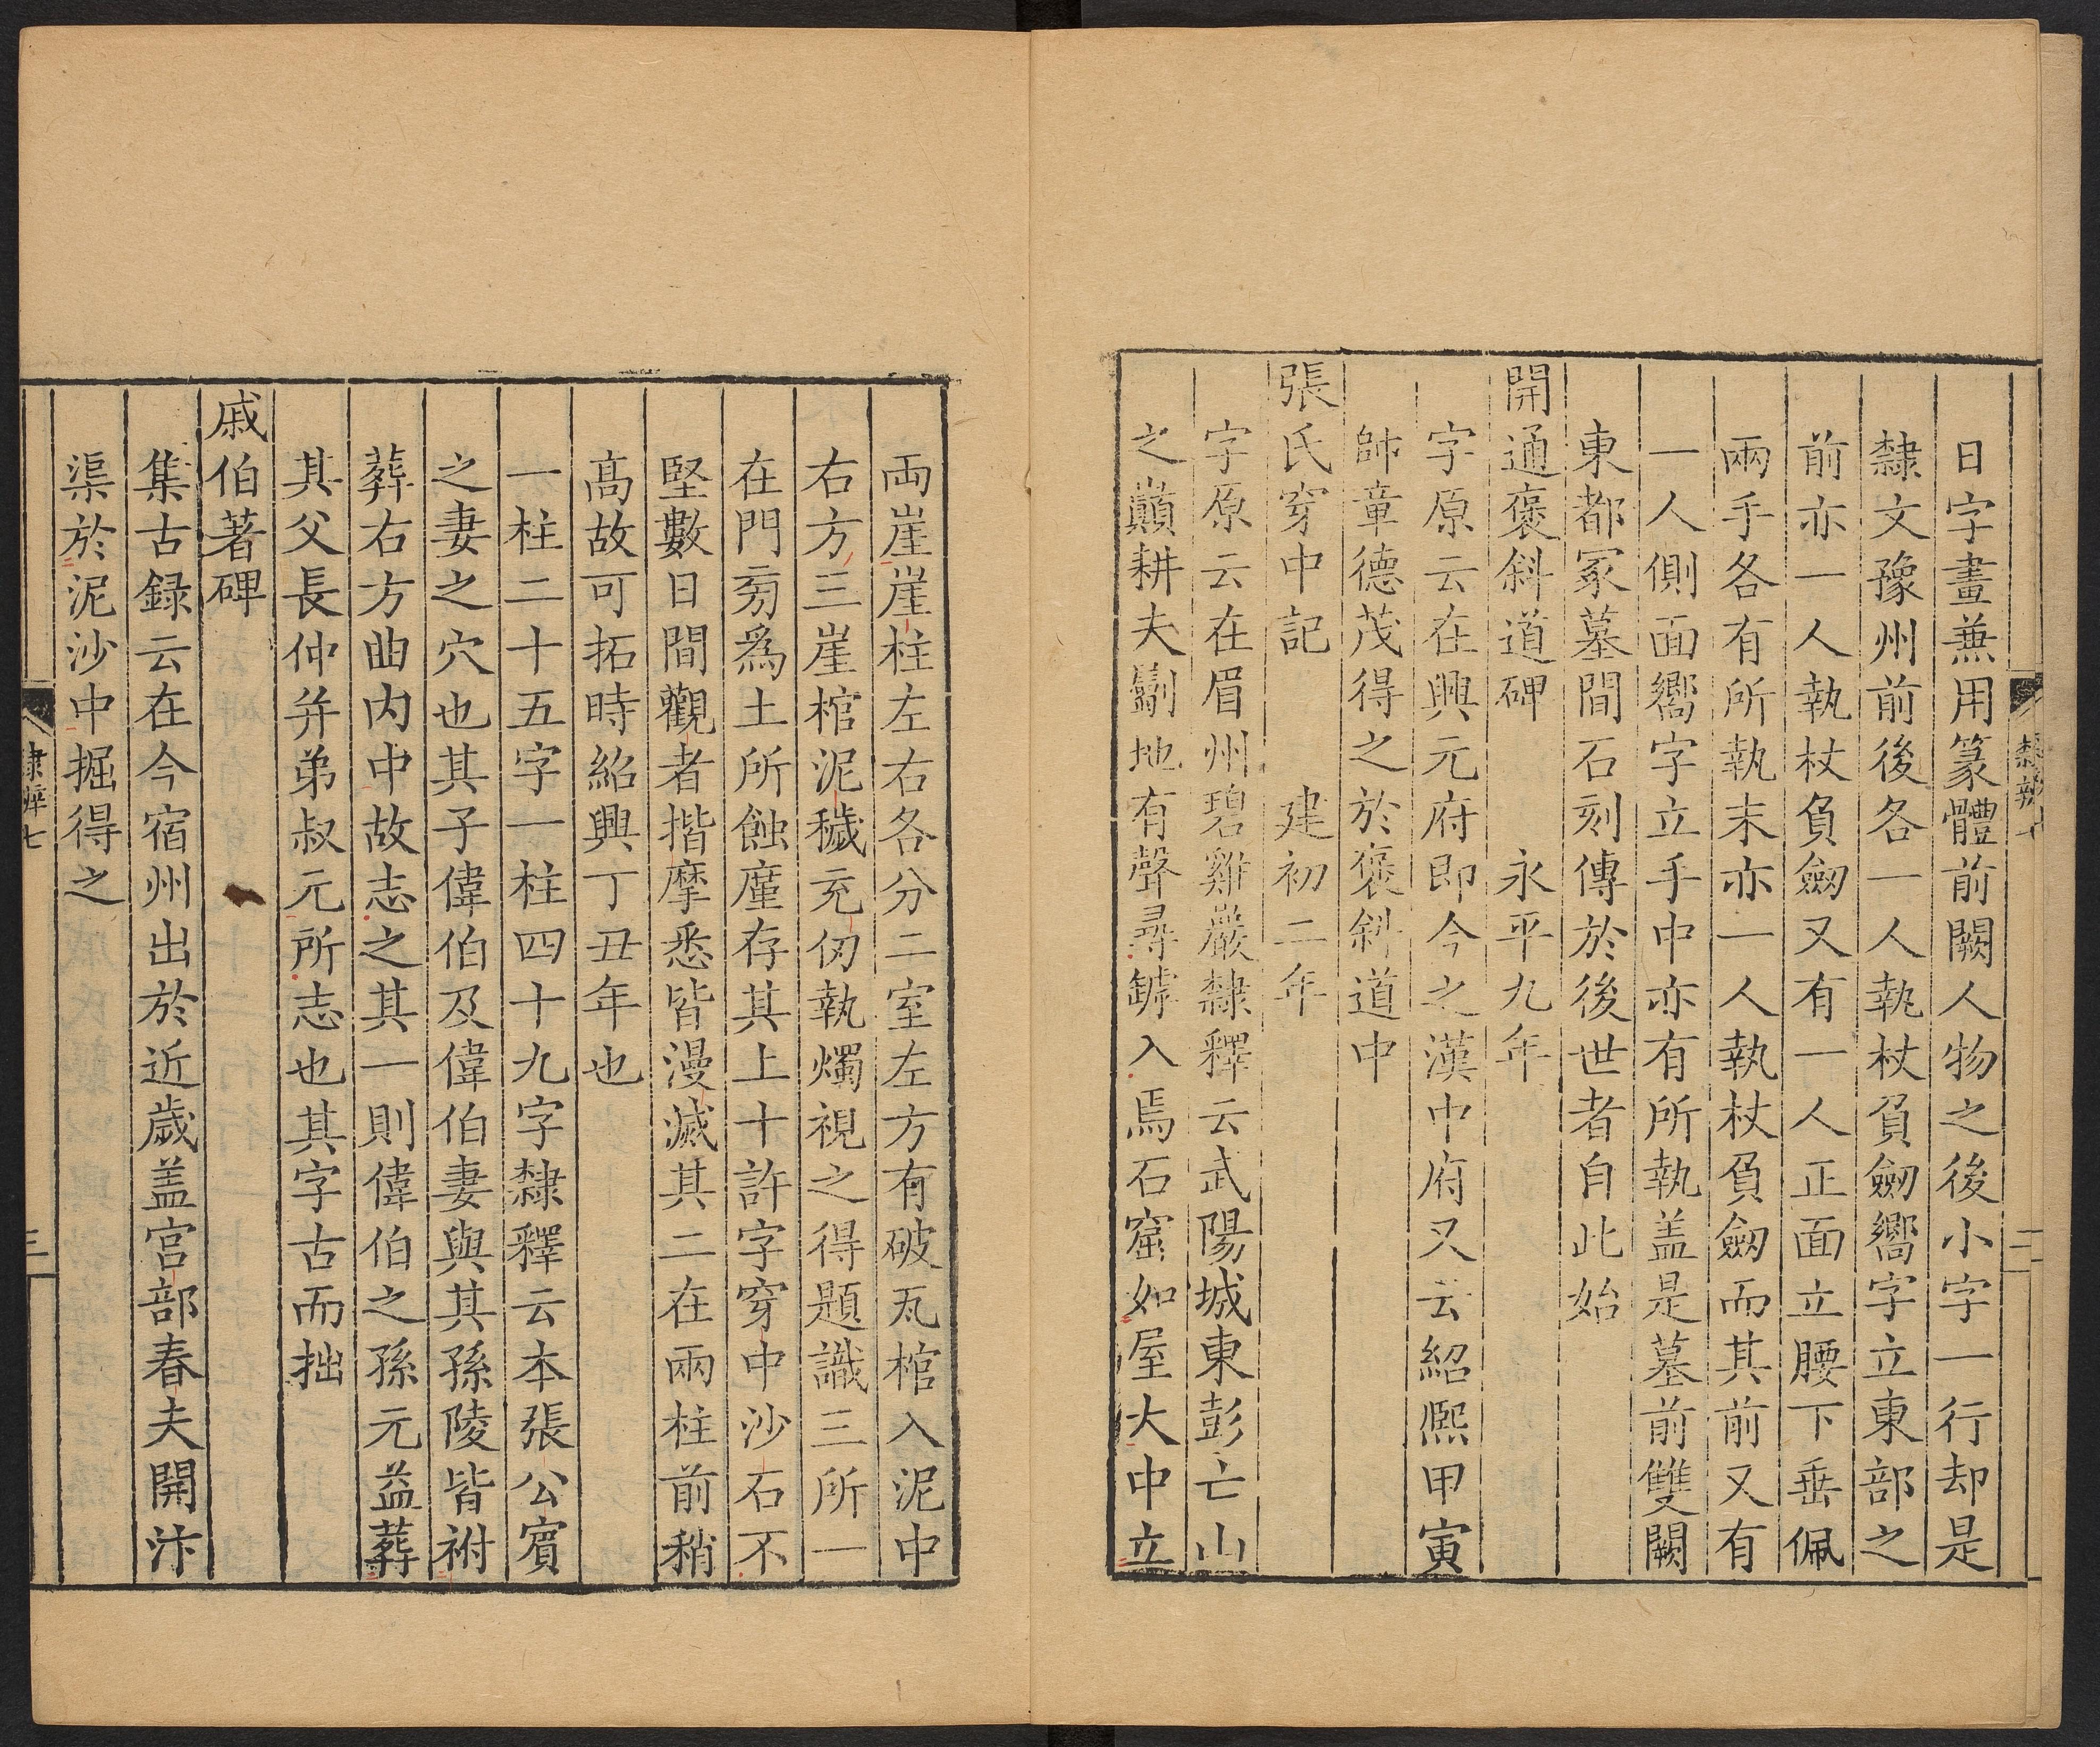 日字畫蕪用篆體前闕人物之後小字一行却是
隸文豫州前後各一人執杖負劒嚮字立東部之
前亦一人執杖負劒又有一人正面立腰下垂佩
兩手各有所執末亦一人執杖負劒而其前又有
一人側面嚮字立手中亦有所執盖是墓前雙闕
東都冢墓間石刻傳於後世者自此始
開通褒斜道碑 永平九年
字原云在興元府即今之漢中府又云紹熈甲寅
帥章德茂得之於褒斜道中
張氏穿中記 建初二年
字原云在眉州碧雞巖隸釋云武陽城東彭亡山
之巔耕夫劚地有聲尋罅入焉石窟如屋大中立
両崖崖柱左右各分二室左方有破瓦棺入泥中
右方三崖棺泥穢充仞執燭視之得題識三所一
在門旁爲土所蝕廑存其上十許字穿中沙石不
堅數日間觀者揩摩悉皆漫滅其二在兩柱前稍
髙故可拓時紹興丁丑年也
一柱二十五字一柱四十九字隸釋云本張公賔
之妻之穴也其子偉伯及偉伯妻與其孫陵皆祔
葬右方曲内中故志之其一則偉伯之孫元益葬
其父長仲并弟叔元所志也其字古而拙
戚伯著碑
集古録云在今宿州出於近歳盖宫部春夫開汴
渠於泥沙中掘得之
隸辨七
三